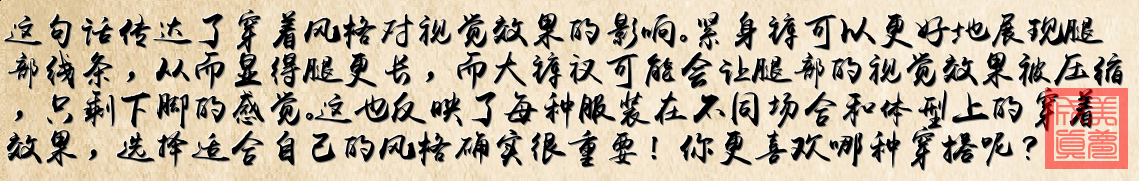 这句话传达了穿着风格对视觉效果的影响。紧身裤可以更好地展现腿
部线条，从而显得腿更长，而大裤衩可能会让腿部的视觉效果被压缩
，只剩下脚的感觉。这也反映了每种服装在不同场合和体型上的穿着
效果，选择适合自己的风格确实很重要！你更喜欢哪种穿搭呢？